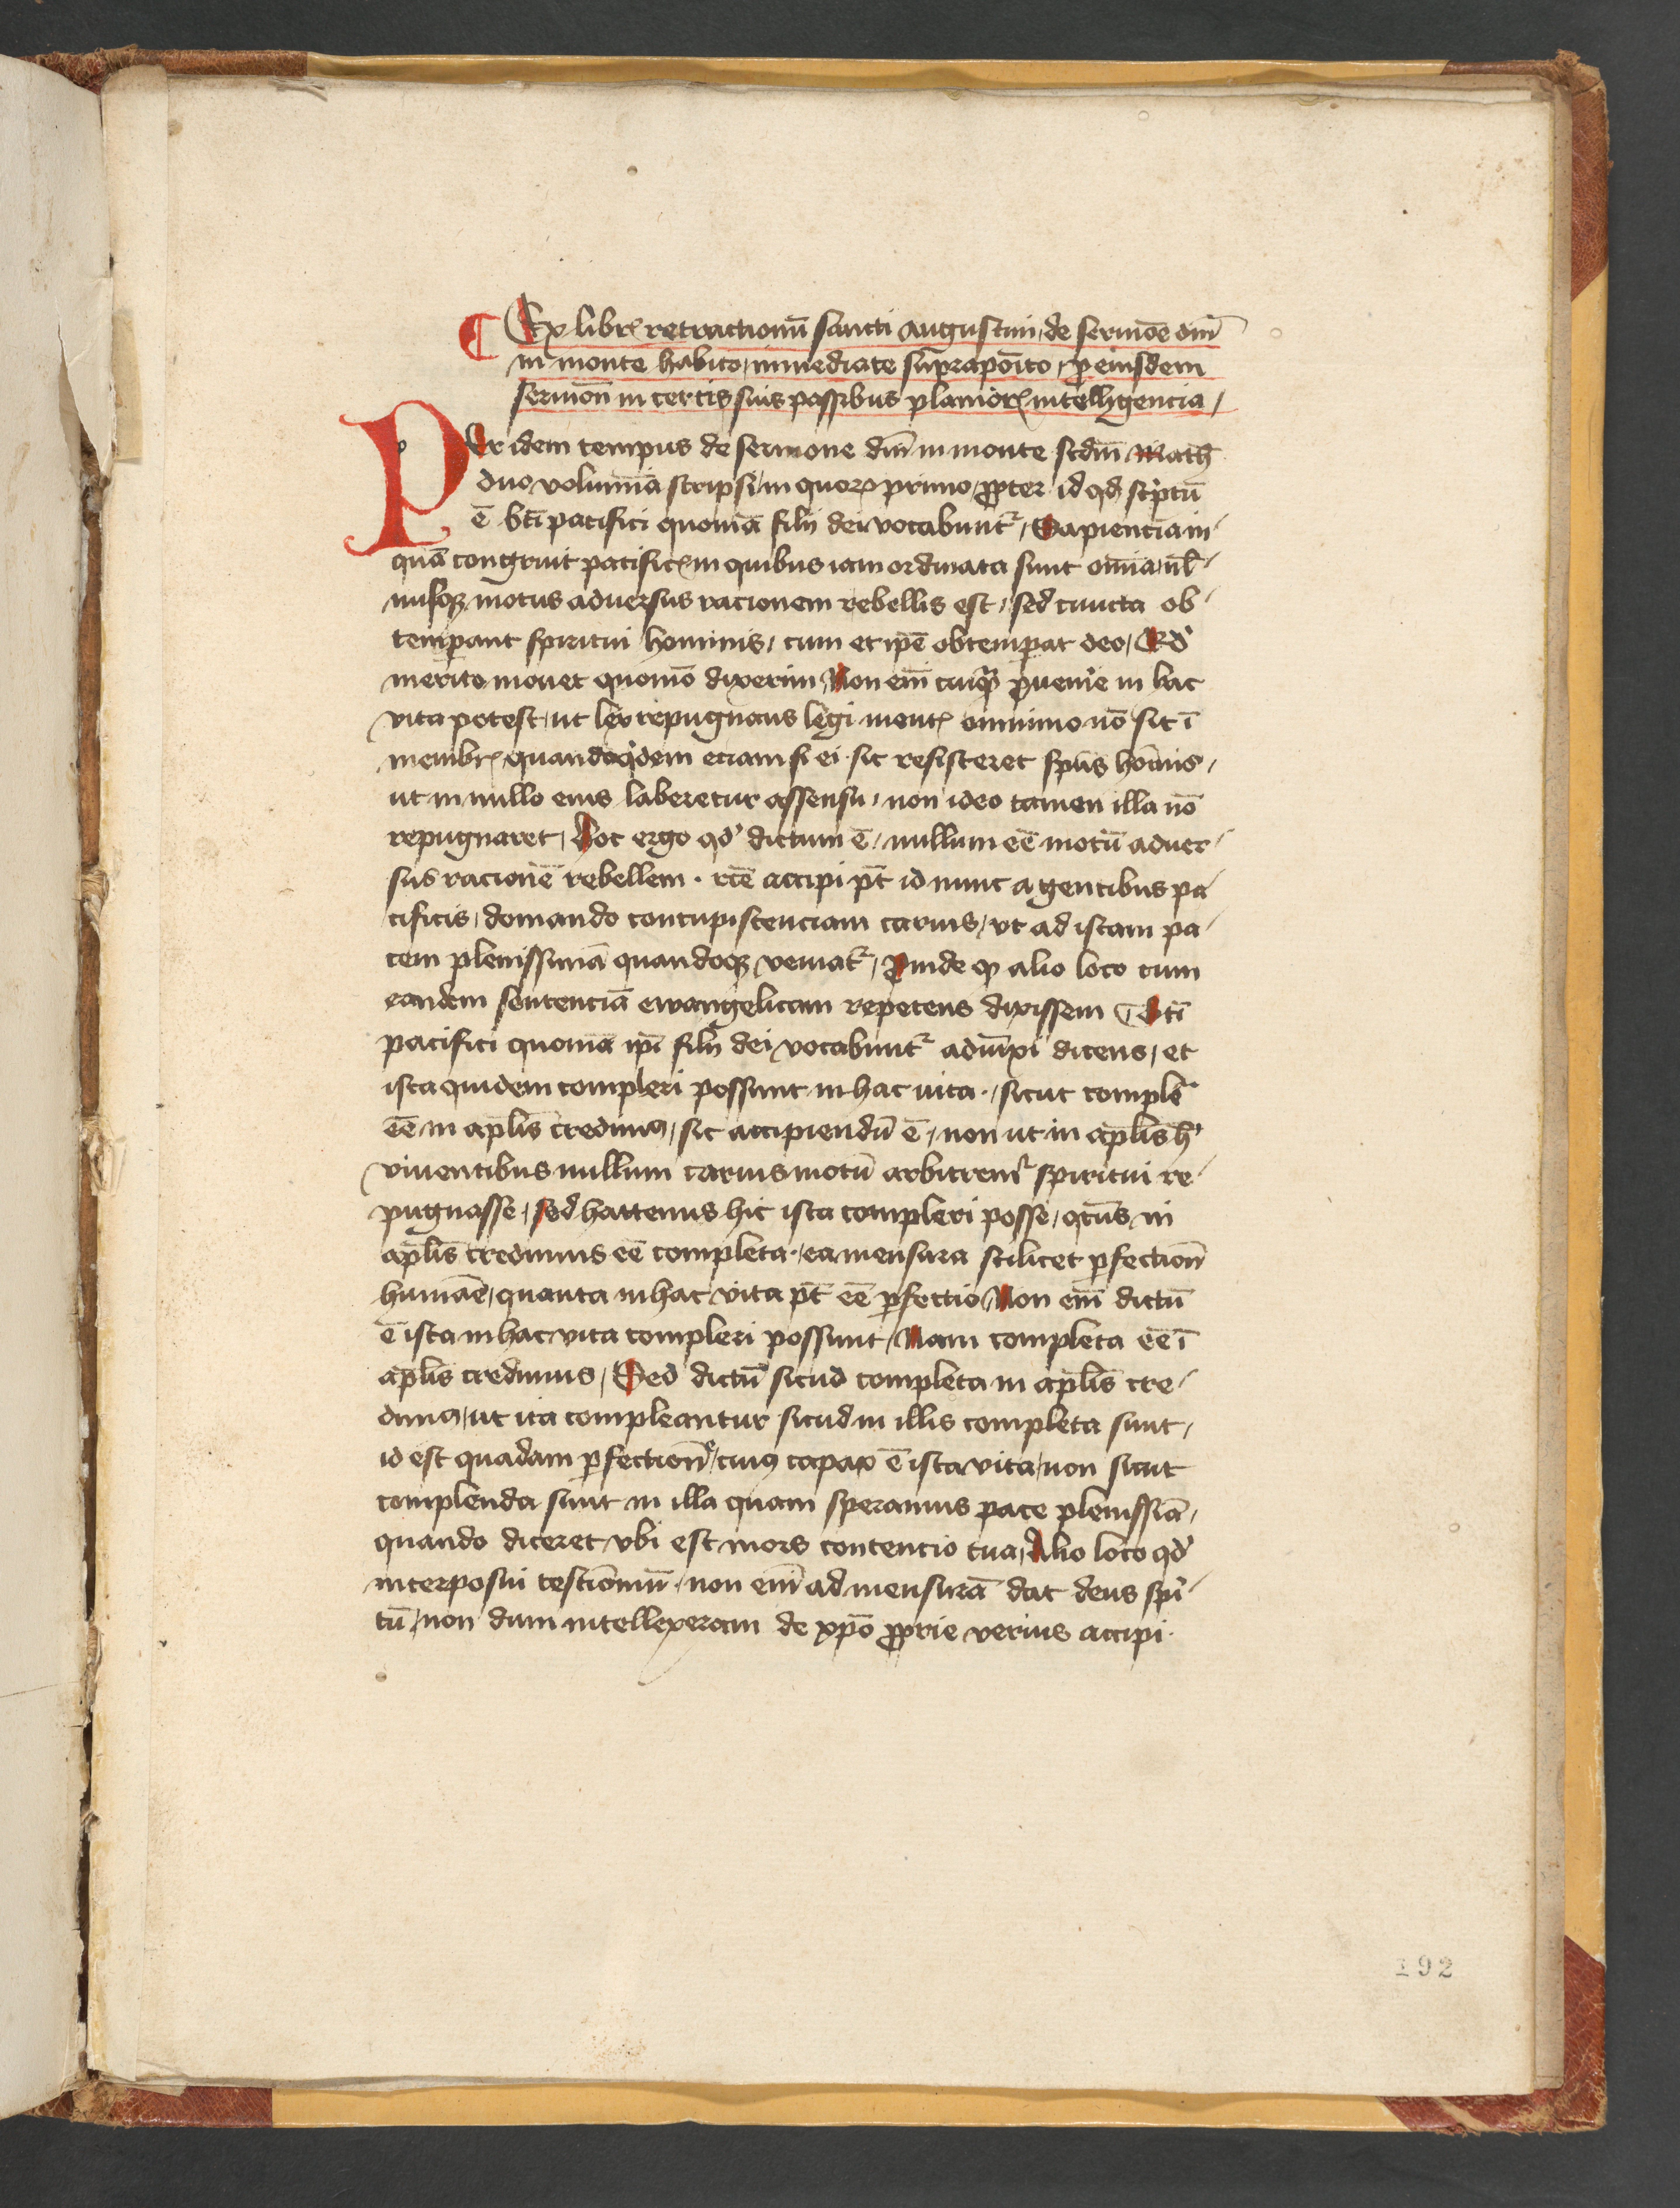 ¶ Ex libr̃ retractionũ sancti augustini, de sermõe dnĩ
in monte habito, immediate supraposito, ꝓ eiusdem
sermoñ in certis suis passibus planiorꝭ intelligencia,
PEr idem tempus de sermone dnĩ in monte scdm̃ Math̃
duo volumina scripsi, in quoꝝ primo, ꝓpter id qd̃ scͥptũ
ẽ bt̃i pacifici quoniã filij dei vocabuntᷣ, Sapiencia in-
quã congruit pacificꝭ in quibus iam ordinata sunt om̃ia, nł-
lusqꝫ motus aduersus racionem rebellis est, sed cuncta ob-
temꝑant spiritui hominis, cum et ip̃e obtemꝑat deo, Qd̃
merito mouet quomõ dixerim, Non em̃ cuiqᷓ ꝓuenire in hac
vita potest, ut lex repugnans legi mentꝭ omnino nõ sit ĩ
membrꝭ quandoqͥdem eciam si ei sic resisteret sp̃us hom̃is,
ut in nullo eius laberetur assensu, non ideo tamen illa nõ
repugnaret, Hoc ergo qd̃ dictum ẽ, nullum eẽ motũ aduer-
sus racionẽ rebellem. rc̃e accipi pt̃ id nunc agentibus pa-
cificis, domando concupiscenciam carnis, vt ad istam pa-
cem plenissimã quandoqꝫ veniatᷣ, Proinde qꝫ alio loco cum
eandem sentenciã ewangelicam repetens dixissem, Bt̃i
pacifici quoniã ip̃i filij dei vocabuntᷣ adiũxi dicens, et
ista quidem compleri possunt in hac vita, sicut complẽ
eẽ in apl̃is credimꝰ, sic accipiendũ ẽ, non ut in apl̃is hͥ
viuentibus nullum carnis motũ arbitremᷣ spiritui re-
pugnasse, sed hactenus hic ista compleri posse, qͣtus in
apl̃is credimus eẽ completa, ea mensura scilicet ꝑfectioñ
humãe, quanta in hac vita pt̃ eẽ ꝑfectio, Non em̃ dictũ
ẽ ista in hac vita compleri possunt, Nam completa eẽ ĩ
apl̃is credimus, Sed dictũ sicud completa in apl̃is cre-
dimꝰ, ut ita compleantur sicud in illis completa sunt,
id est quadam ꝑfectioñe, cuiꝰ capax ẽ ista vita, non sicut
complenda sunt in illa quam speramus pace plenissiã,
quando diceret vbi est mors contencio tua, Alio loco qd̃
interposui testiomiũ, non em̃ ad mensurã dat deus spͥ-
tũ, non dum intellexeram de xp̃o ꝓprie verius accipi.
192